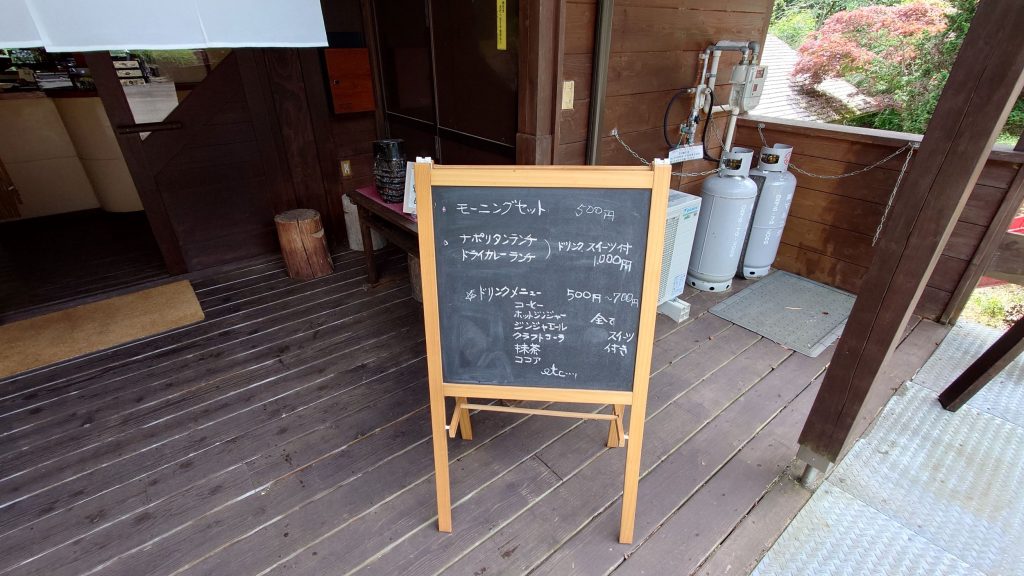 モーニングセット 500円
ナポリタンランチ
ドライカレーランチ
ドリンク スイーツ付
1,000円
※ドリンクメニュー 500円~700円
コーヒー
ホットジンジャー
ジンジャエール
クラフトコーラ
抹茶
ココア
etc...
全て
スイーツ
付き